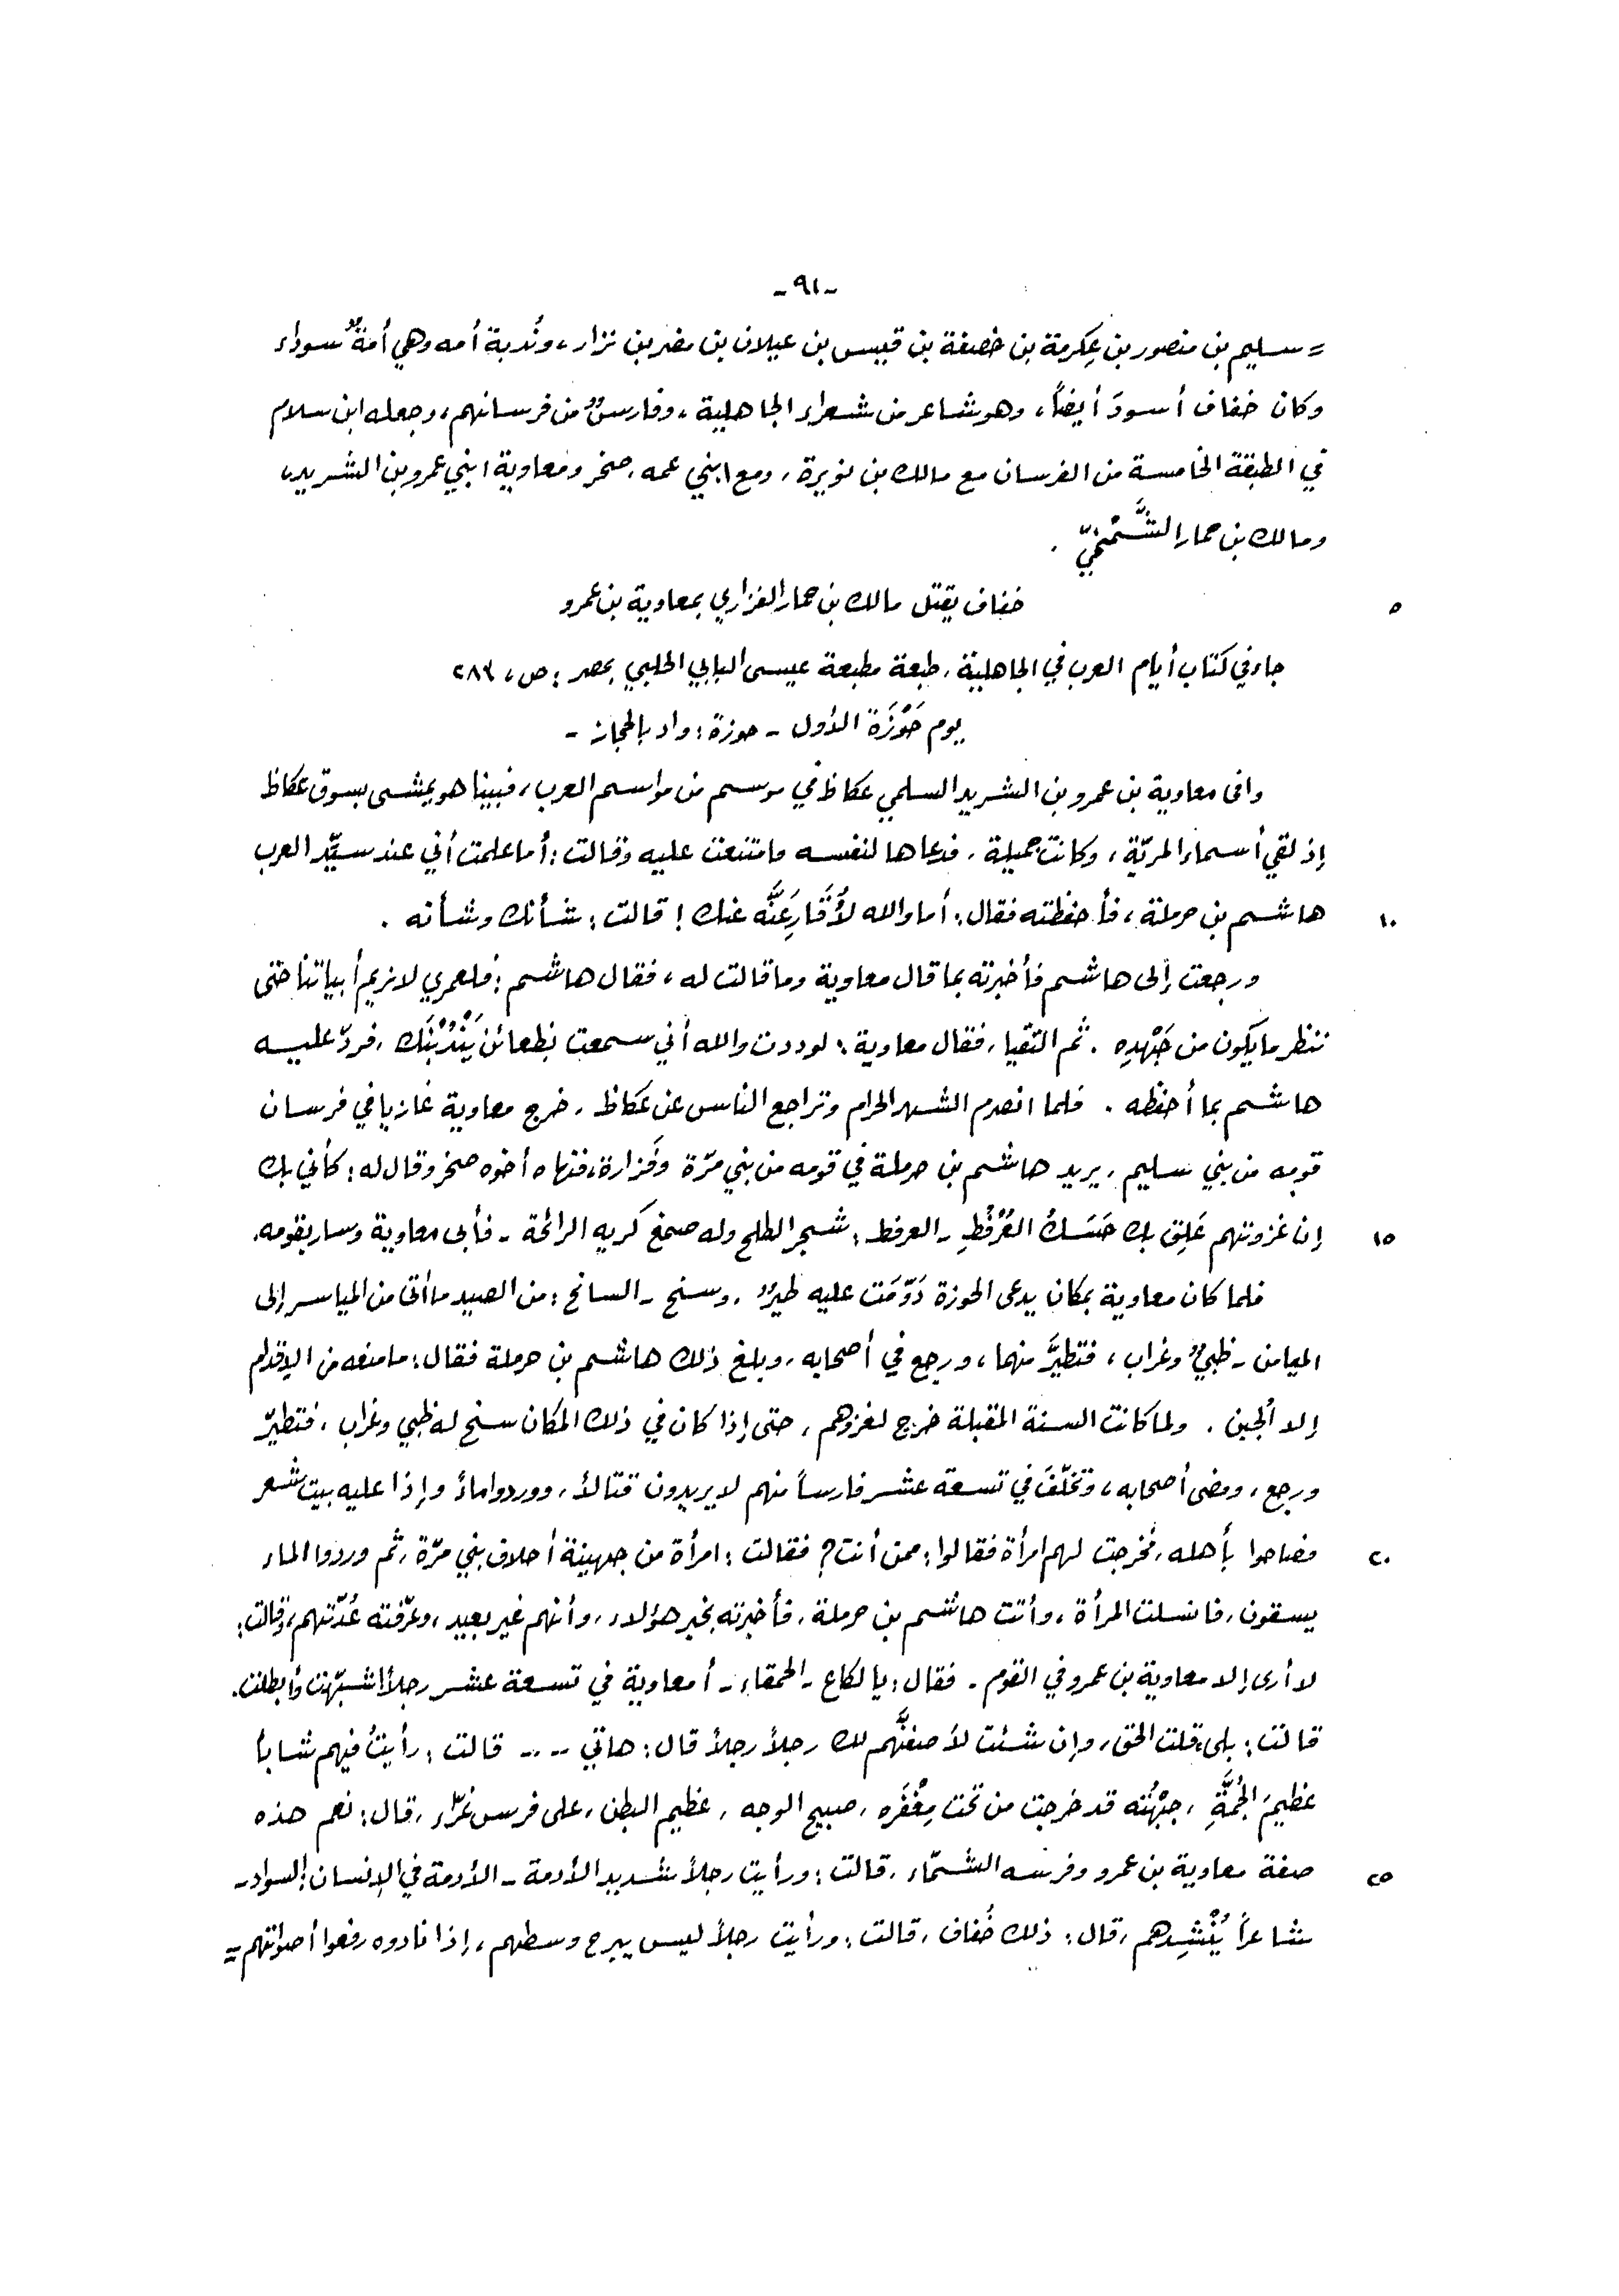 -٩١-
= سليم بن منصور بن عِكرمة بن خصفة بن قيس بن عيلان بن مضر بن نزار، ونُدبة أمه وهي أمةٌ سوداء
وكان خفاف أسودَ أيضاً، وهو شاعر من شعراء الجاهلية، وفارسٌ من فرسانهم، وجعله ابن سلام
في الطبقة الخامسة من الفرسان مع مالك بن نويرة، ومع ابني عمه، صخر ومعاوية ابني عمرو بن الشريد،
ومالك بن حمار الشَّمْخيّ .
٥ خفاف يقتل مالك بن حمار الفزاري بمعاوية بن عمرو
جاء في كتاب أيام العرب في الجاهلية، طبعة مطبعة عيسى البابي الحلبي بمصر: ص، ٢٨٣
يوم حَوْزَة الأول - حوزة: واد بالحجاز -
وافى معاوية بن عمرو بن الشريد السلمي عكاظ في موسم من مواسم العرب، فبينا هو يمشى بسوق عكاظ
إذ لقي أسماء المريّة، وكانت جميلة، فدعاها لنفسه فامتنعت عليه وقالت: أما علمت أني عند سيّد العرب
١٠ هاشم بن حرملة، فأحفظته فقال: أما والله لأُقَارِعَنَّه عنك! قالت: شأنك وشأنه .
ورجعت إلى هاشم فأخبرته بما قال معاوية وما قالت له، فقال هاشم: فلعمري لا نريم أبياتنا حتى
ننظر ما يكون من جَهْدِه . ثم التقيا، فقال معاوية: لوددت والله أني سمعت بظعائن يَنْدُبْنَك، فردّ عليه
هاشم بما أحفظه . فلما انصرم الشهر الحرام وتراجع الناس عن عكاظ، خرج معاوية غازيا في فرسان
قومه من بني سليم، يريد هاشم بن حرملة في قومه من بني مرّة وفزارة، فنهاه أخوه صخر وقال له: كأني بك
١٥ إن غزوتهم عَلِق بك حَسَكُ العُرْفُطِ - العرفط: شجر الطلح وله صمغ كريه الرائحة - فأبى معاوية وسار بقومه.
فلما كان معاوية بمكان يدعى الحوزة دَوَّمَت عليه طيرٌ، وسنح - السانح: من الصيد ما أتى من المياسر إلى
الميامن - ظبيٌ وغراب، فتطيَّر منهما، ورجع في أصحابه، وبلغ ذلك هاشم بن حرملة فقال: ما منعه من الإقدام
إلا الجبن . ولما كانت السنة المقبلة خرج لغزوهم، حتى إذا كان في ذلك المكان سنح له ظبي وغراب، فتطيّر
ورجع، ومضى أصحابه، وتخلّفَ في تسعة عشر فارساً منهم لا يريدون قتالاً، ووردوا ماءً وإذا عليه بيت شعر
٢٠ فصاحوا بأهله، فخرجت لهم امرأة فقالوا: ممن أنت؟ فقالت: امرأة من جهينة أحلاف بني مرّة، ثم وردوا الماء
يسقون، فانسلت المرأة، وأتت هاشم بن حرملة، فأخبرته بخبر هؤلاء، وأنهم غير بعيد، وعرّفته عُدّتهم، وقالت:
لا أرى إلا معاوية بن عمرو في القوم . فقال: يا لكاع - الحمقاء - أمعاوية في تسعة عشر رجلاً اشبّهت وأبطلت.
قالت: بلى، قلت الحق، وإن شئت لأصفنَّهم لك رجلاً رجلاً قال: هاتي .... قالت: رأيتُ فيهم شاباً
عظيمَ الجُمَّةِ، جبْهَتُه قد خرجت من تحت مِغْفَره، صبيح الوجه، عظيم البطن، على فرس غرّاء، قال: نعم هذه
٢٥ صفة معاوية بن عمرو وفرسه الشمّاء، قالت: ورأيت رجلاً شديد الأدمة - الأدمة في الإنسان: السواد -
شاعراً يُنْشِدهم، قال: ذلك خُفاف، قالت: ورأيت رجلاً ليس يبرح وسطهم، إذا نادوه رفعوا أصواتهم =